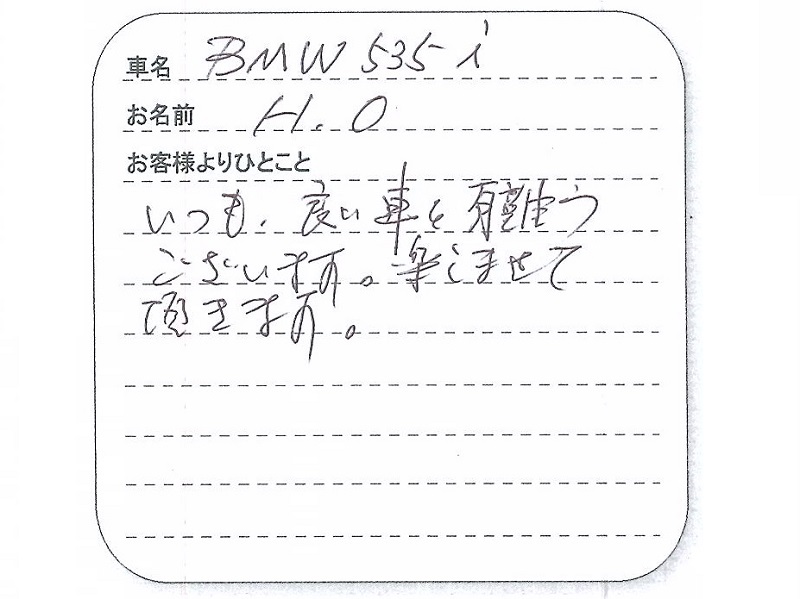 車名 BMW 535i
お名前 H.O
お客様よりひとこと
いつも、良い車を有難う
ございます。楽しませて
頂きます。